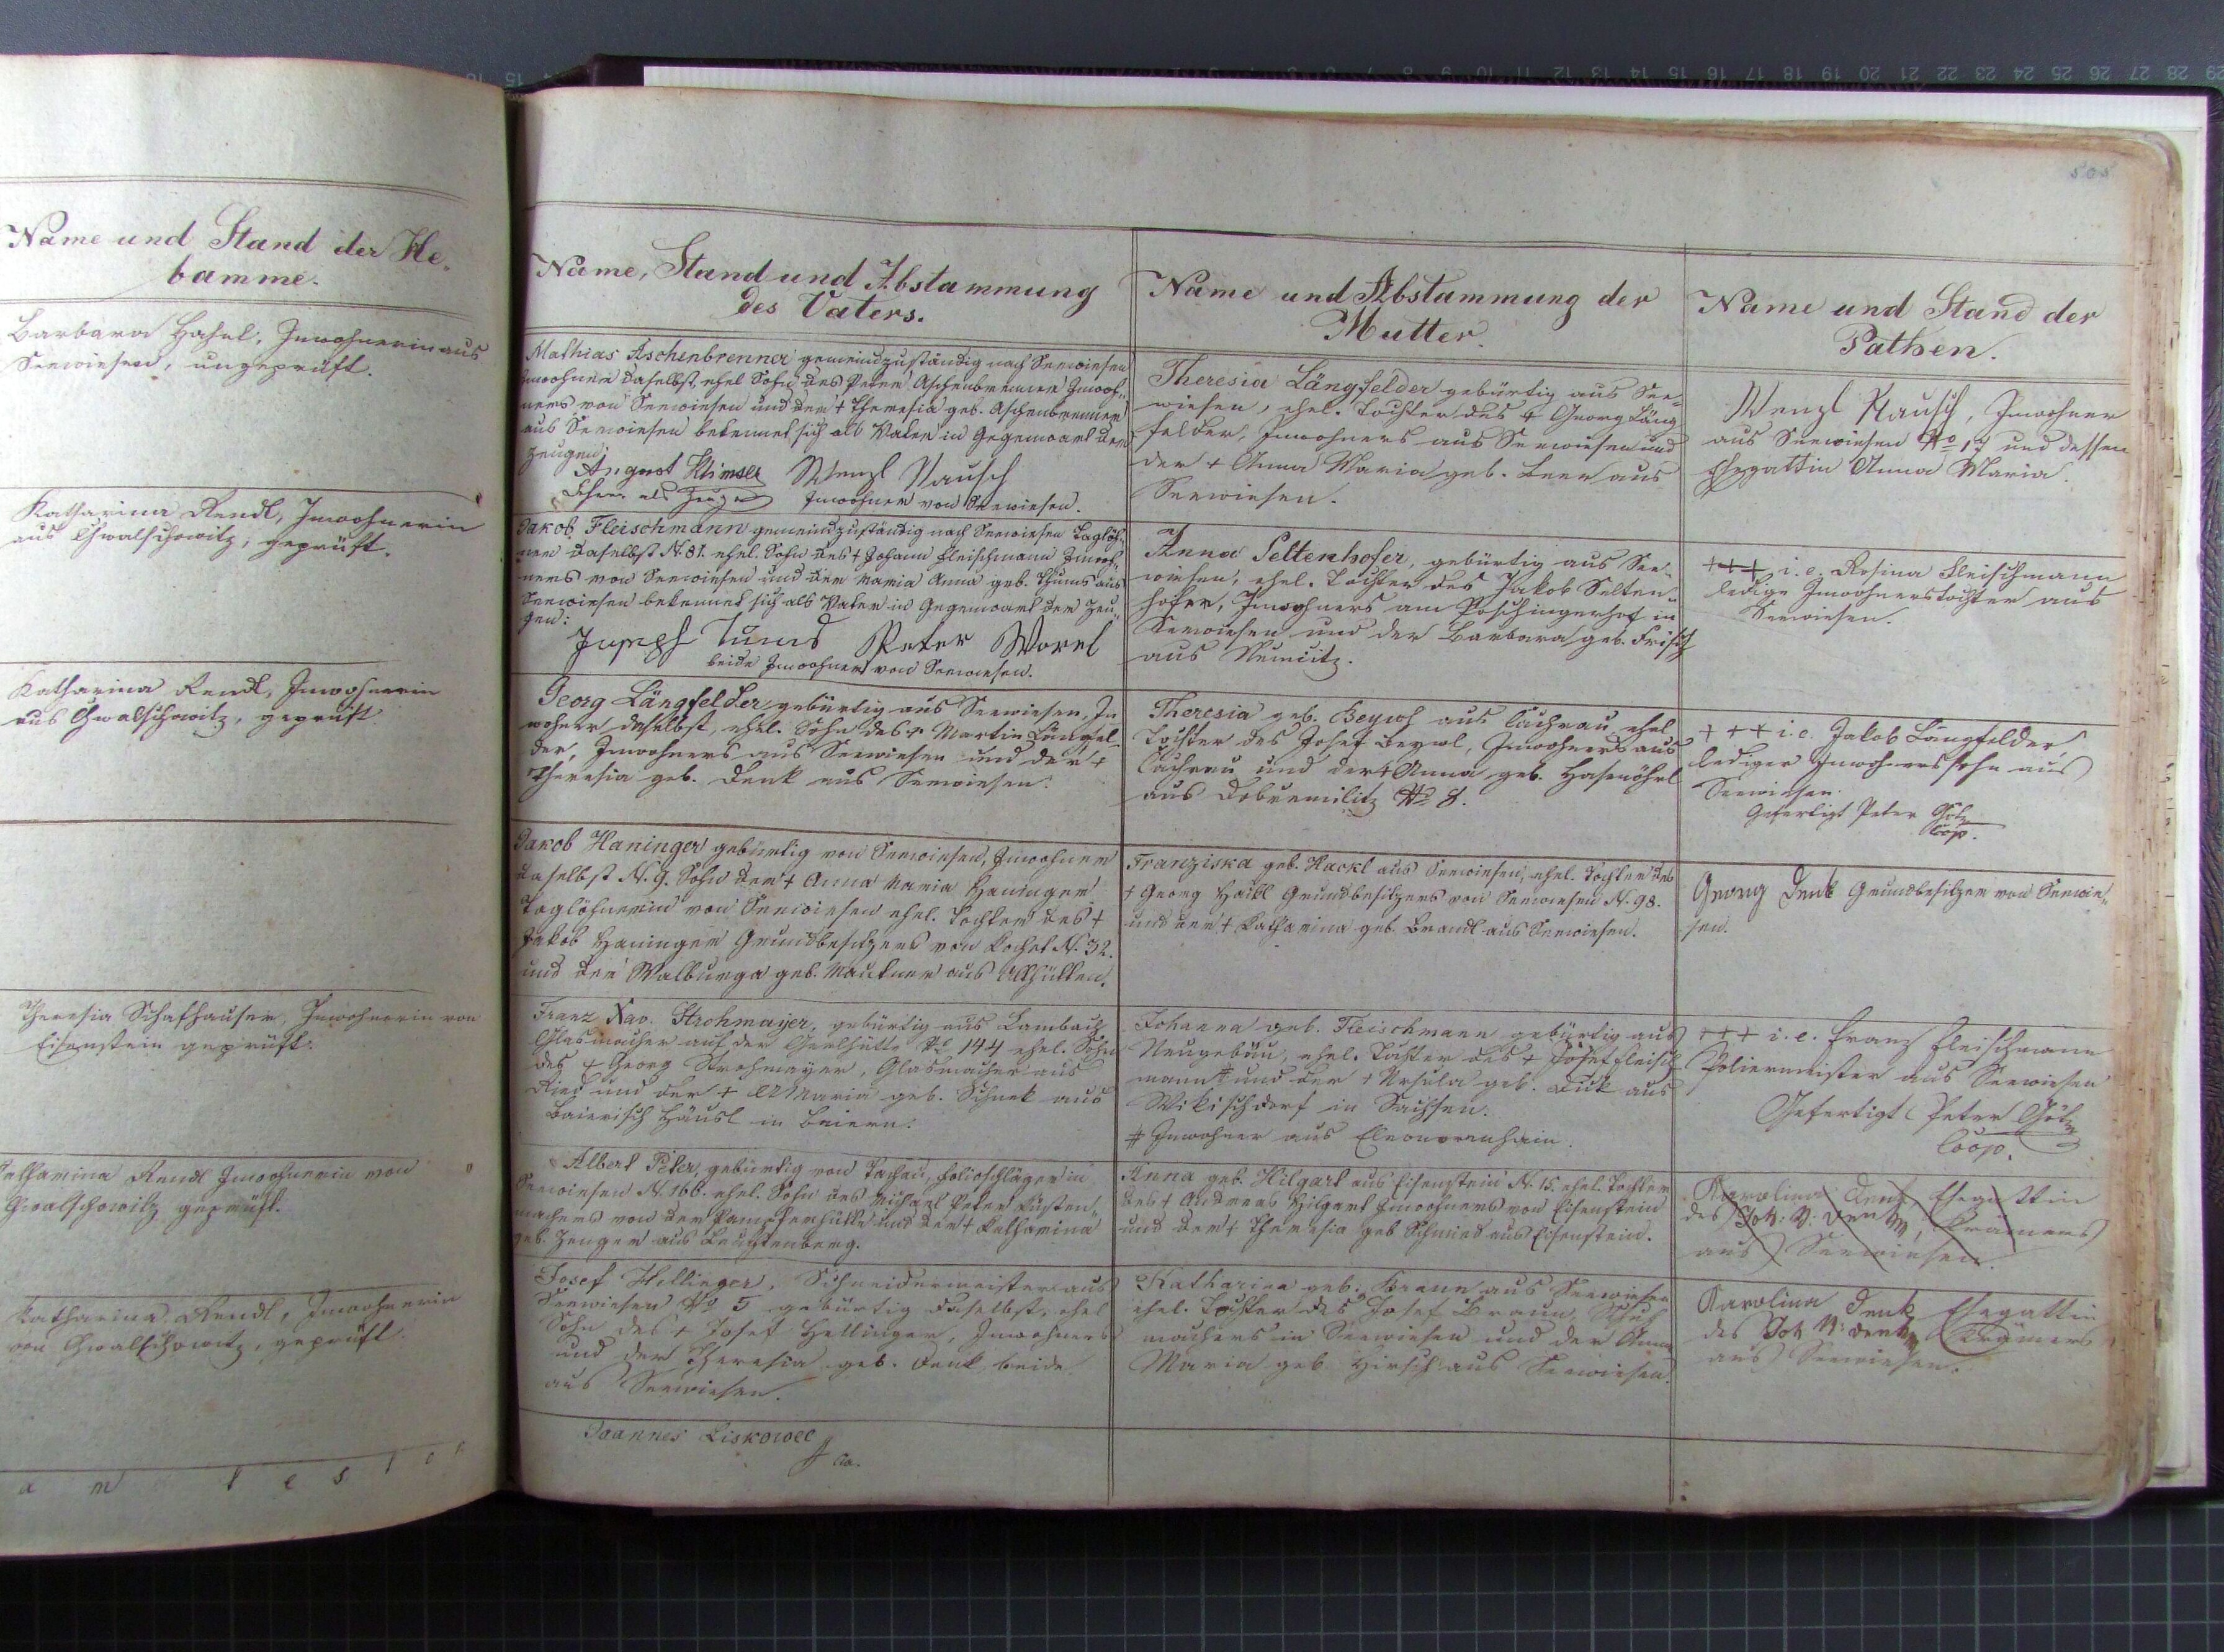 505
Name und Stand der He-
bamme.
Barbara Hasel, Inwohnerin aus
Seewiesen, ungeprüft.
Katharina Rendl, Inwohnerin
aus Chwalschowitz, geprüft.
Katharina Rendl, Inwohnerin
aus Chwalschowitz, geprüft
Theresia Schafhauser, Inwohnerin von
Eisenstein geprüft.
Katharina Rendl Inwohnerin von
Chwalschowitz geprüft.
Katharina Rendl, Inwohnerin
von Chwalschowitz, geprüft.
Name, Stand und Abstammung
des Vaters.
Mathias Aschenbrenner gemeindzuständig nach Seewiesen
Inwohner daselbst, ehel. Sohn des Peter Aschenbrenner Inwoh-
ners von Seewiesen und der † Theresia geb. Aschenbrenner
aus Seewiesen bekennet sich als Vater in Gegenwart der
Zeugen:
August Klimsel Wenzl Rausch
Lehrer als Zeuge Inwohner von Seewiesen.
Jakob Fleischmann gemeindzuständig nach Seewiesen Taglöh-
ner daselbst N. 81. ehel. Sohn des † Johann Fleischmann Inwoh-
ners von Seewiesen und der Maria Anna geb. Thums aus
Seewiesen bekennet sich als Vater in Gegenwart der Zeu-
gen:
Joseph Tums Peter Worel
beide Inwohner von Seewiesen.
Georg Längfelder, gebürtig aus Seewiesen, In
wohner daselbst, ehel. Sohn des † Martin Längfel-
der, Inwohners aus Seewiesen und der †
Theresia geb. Denk aus Seewiesen.
Jakob Haninger gebürtig von Seewiesen, Inwohner
daselbst N. 9. Sohn der † Anna Maria Haninger
Taglöhnerin von Seewiesen ehel. Tochter des †
Jakob Haninger Grundbesitzers von Kochet N. 32.
und der Walburga geb. Mautner aus Althütten.
Franz Xav. Strohmayer, gebürtig aus Lambach
Glasmacher auf der Gerlhütte No 144 ehel. Sohn
des † Georg Strohmayer, Glasmacher aus
Ried und der † AMaria geb. Schrek aus
Baierisch Häusl in Baiern.
Albert Peter, gebürtig von Tachau, Folioschläger in
Seewiesen N. 166. ehel. Sohn des Michael Peter Küsten-
machers von der Pampferhütte und der † Katharina
geb. Zenger aus Leuchtenberg.
Josef Hellinger, Schneidermeister aus
Seewiesen No 5 gebürtig daselbst, ehel
Sohn des † Josef Hellinger, Inwohners
und der Theresia geb. Denk beide
aus Seewiesen.
Joannes Liskowec
Name und Abstammung der
Mutter.
Theresia Längfelder gebürtig aus See-
wiesen, ehel. Tochter des † Georg Läng
felder, Inwohners aus Seewiesen und
der † Anna Maria geb. Beer aus
Seewiesen.
Anna Seltenhofer, gebürtig aus See-
wiesen, ehel. Tochter des Jakob Selten-
hofer, Inwohners am Poschingerhof in
Seewiesen und der Barbara geb. Frisch
aus Nemcitz.
Theresia geb. Beywl aus Cachrau ehel
Tochter des Josef Beywl, Inwohners aus
Cachrau und der † Anna geb. Hasenöhrl
aus Dobremilitz No 8.
Franziska geb. Hackl aus Seewiesen, ehel. Tochter des
† Georg Hackl Grundbesitzers von Seewiesen N. 98.
und der † Katharina geb. Brandl aus Seewiesen.
Johanna geb. Fleischmann gebürtig aus
Neugebäu, ehel. Tochter des † Josef Fleisch
mann # und der † Ursula geb. Duk aus
Wikischdorf in Sachsen.
# Inwohner aus Eleonorenhain.
Anna geb. Hilgart aus Eisenstein N. 15. ehel. Tochter
des † Andreas Hilgart Inwohners von Eisenstein
und der † Theresia geb Schmid aus Eisenstein.
Katharina geb. Braun aus Seewiesen
ehel. Tochter des Josef Braun, Schuh
machers in Seewiesen und der Anna
Maria geb. Hirsch aus Seewiesen.
Name und Stand der
Pathen.
Wenzl Rausch, Inwohner
aus Seewiesen No 17 und dessen
Ehegattin Anna Maria.
+++ i. e. Rosina Fleischmann
ledige Inwohnerstochter aus
Seewiesen.
+++ i. e. Jakob Längfelder,
lediger Inwohnerssohn aus
Seewiesen.
Gefertigt Peter Götz
Coop.
Georg Denk Grundbesitzer von Seewie-
sen.
+++ i. e. Franz Fleischmann
Poliermeister aus Seewiesen
Gefertigt Peter Götz
Coop.
Karolina Denk, Ehegattin
des Joh: N: Denk, Krämers
aus Seewiesen.
Karolina Denk Ehegattin
des Joh N: Denk Krämers
aus Seewiesen.